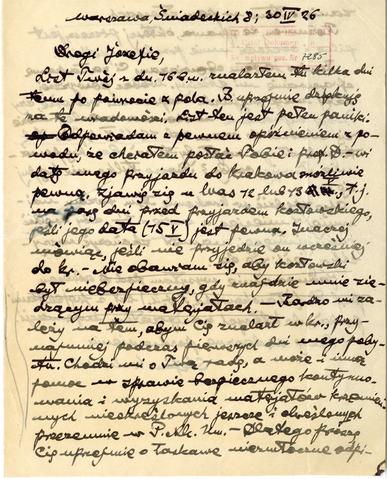 Warszawa, Śniadeckich 8; 30 IV 26
Drogi Józefie,
List Twój z dn. 16 b.m. znalazłem tu kilka dni
temu po powrocie z pola. B. uprzejmie dziękuję
za te wiadomości. List ten jest pełen paniki.
Odpowiadam z pewnem opóźnieniem z po-
wodu, że chciałem podać Tobie i prof. D. – wi
datę mego przyjazdu do Krakowa możliwie
pewną. Zjawię się u Was 12 lub 13 t.j.
na parę dni przed przyjazdem Kozłowskiego,
jeśli jego data (15 V) jest pewna. Inaczej
mówiąc, jeśli nie przyjedzie on wcześniej
do Kr. – Nie obawiam się, aby Kozłowski
był niebezpieczny, gdy znajdzie mnie sie-
dzącym przy materjałach. – Bardzo mi za-
leży na tem, abym Cię znalazł w Kr., przy-
najmniej podczas pierwszych dni mego poby-
tu. Chodzi mi o Twą radę, a może i inną
pomoc w sprawie bezpiecznego kontynuo-
wania i wyzyskania materjałów
nych nieokreślonych jeszcze i określonych
przezemnie w P.Ak. Um. – Dlatego proszę
Cię uprzejmie o łaskawe niezwłoczne odpi-